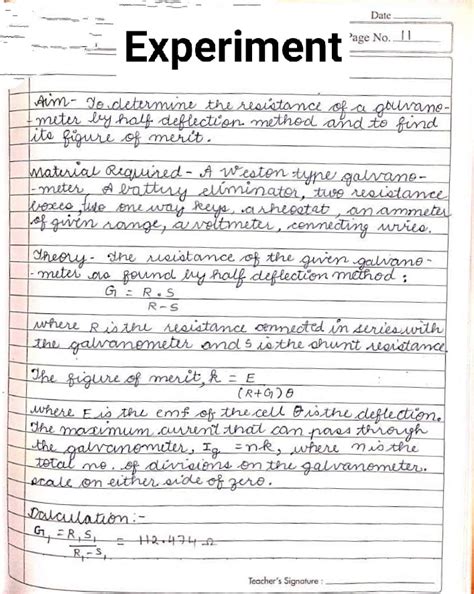 Date
Experiment
Page No. 11
Aim- To determine the resistance of a galvano-
-meter by half deflection method and to find
its figure of merit.
Material Required - A Weston type galvano-
-meter, A battery eliminator, two resistance
boxes, two one way keys, a rheostat, an ammeter
of given range, a voltmeter, connecting wires.
Theory- The resistance of the given galvano-
-meter as found by half deflection method :
G = R.S
R-S
where R is the resistance connected in series with
the galvanometer and S is the shunt resistance
The figure of merit, k = E
(R+G)θ
where E is the emf of the cell θ is the deflection.
The maximum current that can pass through
the galvanometer, Ig = nk, where n is the
total no. of divisions on the galvanometer.
scale on either side of zero.
Calculation :-
G1 = R1S1 = 112.474 Ω
R1-S1
Teacher's Signature :